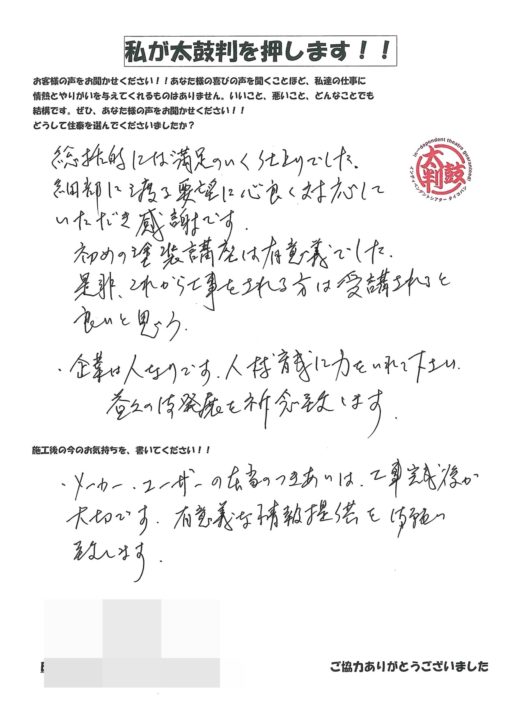 私が太鼓判を押します！！
お客様の声をお聞かせください！！あなた様の喜びの声を聞くことほど、私達の仕事に
情熱とやりがいを与えてくれるものはありません。いいこと、悪いこと、どんなことでも
結構です。ぜひ、あなた様の声をお聞かせください！！
どうして住泰を選んでくださいましたか？
総括的には満足のいく仕上りでした。
細部に渡る要望に心良く対応して
いただき感謝です。
初めの塗装講座は有意義でした。
是非、これから工事をされる方は受講されると
良いと思う。
・企業は人なりです。人材育成に力をいれて下さい。
益々の御発展を祈念致します。
太鼓判
施工後の今のお気持ちを、書いてください！！
・メーカー、ユーザーの本当のつきあいは、工事完成後が
大切です。有意義な情報提供を御願い
致します。
ご協力ありがとうございました